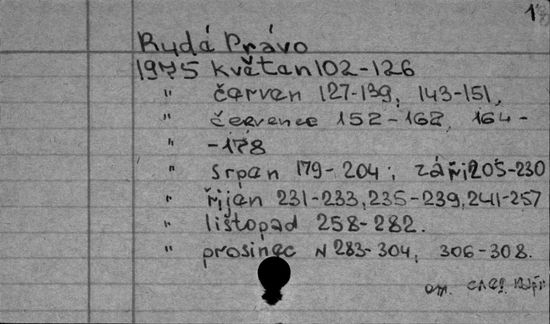 1
Rudá Právo
1975 květen 102-126
" červen 127-139; 143-151,
" červenec 152-162, 164-
" -178
" srpan 179-204; září 205-230
" říjan 231-233, 235-239, 241-257
" listopad 258-282.
" prosinec N 283-304; 306-308.